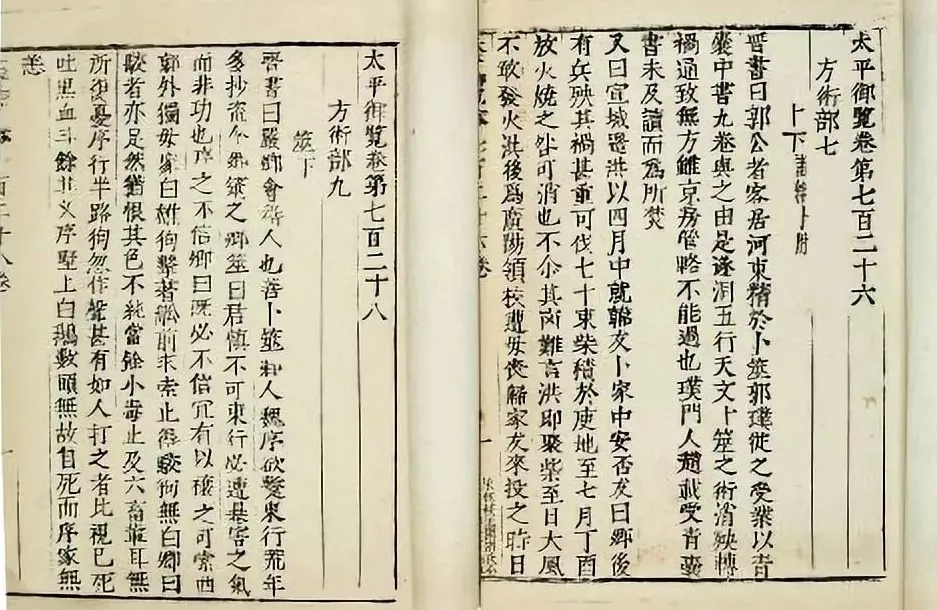 太平御覧卷第七百二十六
方術部七
卜下諸雜卜附
晋書曰郭公者客居河東精於卜筮郭璞從之受業以青
囊中書九卷與之由是遂洞五行天文卜筮之術消殃轉
禍通致無方雖京房管輅不能過也璞門人趙載受青囊
書未及讀而爲所焚
又曰宣城邊洪以四月中就韓友卜家中安否友曰卿後
有兵殃其禍甚重可伐七十束柴積於庚地至七月丁酉
放火燒之咎可消也不尒其凶難言洪即聚柴至日大風
不敢發火洪後爲廣陽領校遭母喪歸家友來投之時日
太平御覧卷第七百二十八
方術部九
筮下
晋書曰嚴卿會稽人也善卜筮郷人魏序欲蹔東行荒年
多抄盗令卿筮之卿筮曰君慎不可東行必遭暴害之氣
而非功也序之不信卿曰既必不信冝有以禳之可索西
郭外獨母家白雄狗繫著船前求索止得駮狗無白卿曰
駮者亦足然猶恨其色不純當餘小毒止及六畜輩耳無
所復憂序行半路狗忽作聲甚有如人打之者比視已死
吐黑血斗餘其夕序墅上白鵝數頭無故自死而序家無
恙